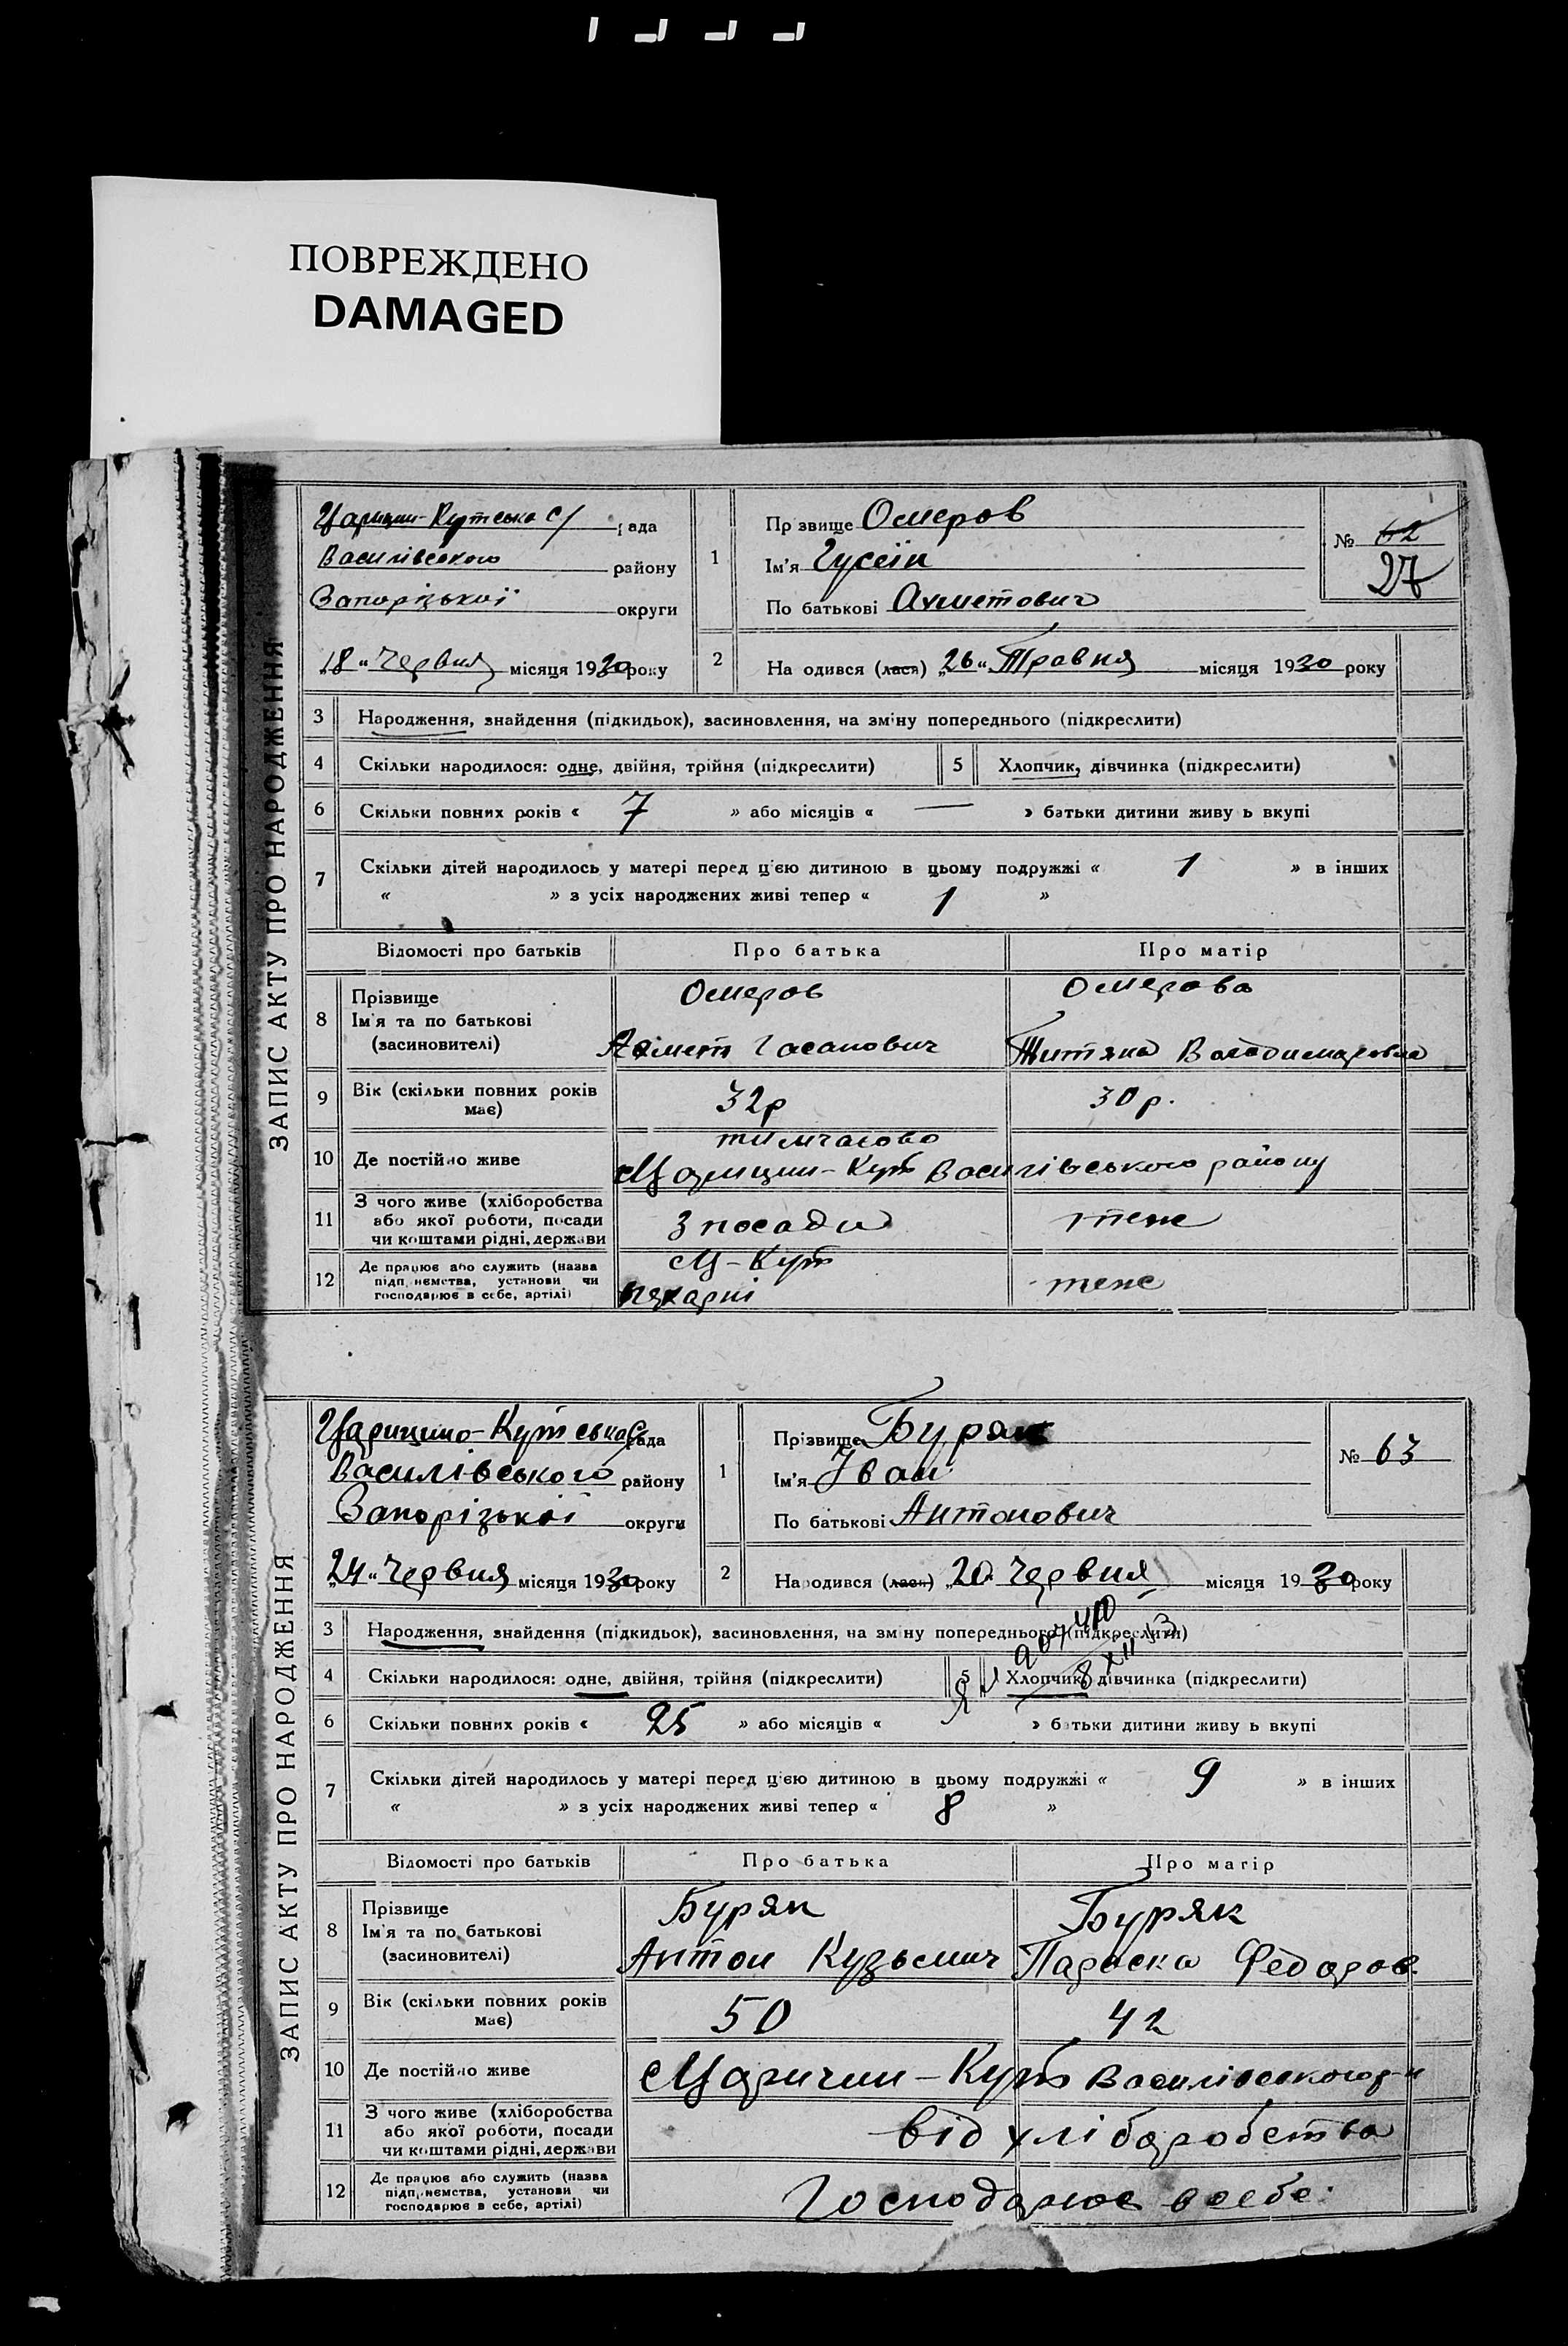 ПОВРЕЖДЕНО
DAMAGED
ЗАПИС АКТУ ПРО НАРОДЖЕННЯ
Царицин-Кутська с/ рада
Василівського району
Запорізької округи
„18“ Червня місяця 1930 року
1
Прізвище Омеров
Ім'я Гусеїн
По батькові Ахметович
№ 62
27
2
Народився (лася) „26“ Травня місяця 1930 року
3 Народження, знайдення (підкидьок), засиновлення, на зміну попереднього (підкреслити)
4 Скільки народилося: одне, двійня, трійня (підкреслити) 5 Хлопчик, дівчинка (підкреслити)
6 Скільки повних років « 7 » або місяців « — » батьки дитини живуть вкупі
7 Скільки дітей народилось у матері перед цією дитиною в цьому подружжі « 1 » в інших
« » з усіх народжених живі тепер « 1 »
Відомості про батьків Про батька Про матір
8 Прізвище Омеров Омерова
Ім'я та по батькові
(засиновителі) Ахмет Гасанович Титяна Володимировна
9 Вік (скільки повних років має) 32р 30р.
тимчасово
10 Де постійно живе с Царицин-Кут Василівського району
11 З чого живе (хліборобства
або якої роботи, посади
чи коштами рідні, держави З посади теж
12 Де працює або служить (назва
підприємства, установи чи
господарює в себе, артілі) с Ц-Кут
пекарні теж
ЗАПИС АКТУ ПРО НАРОДЖЕННЯ
Царицино-Кутська с/рада
Василівського району
Запорізької округи
„24“ Червня місяця 1930 року
1
Прізвище Буряк
Ім'я Іван
По батькові Антонович
№ 63
2
Народився (лася) „20“ Червня місяця 1930 року
3 Народження, знайдення (підкидьок), засиновлення, на зміну попереднього (підкреслити)
4 Скільки народилося: одне, двійня, трійня (підкреслити) 5 Хлопчик, дівчинка (підкреслити)
6 Скільки повних років « 25 » або місяців « » батьки дитини живуть вкупі
7 Скільки дітей народилось у матері перед цією дитиною в цьому подружжі « 9 » в інших
« » з усіх народжених живі тепер « 8 »
Відомості про батьків Про батька Про матір
8 Прізвище Буряк Буряк
Ім'я та по батькові
(засиновителі) Антон Кузьмич Параска Федоров.
9 Вік (скільки повних років має) 50 42
10 Де постійно живе с Царичин-Кут Василівського р-н
11 З чого живе (хліборобства
або якої роботи, посади
чи коштами рідні, держави від хліборобства
12 Де працює або служить (назва
підприємства, установи чи
господарює в себе, артілі) Господарює в себе.